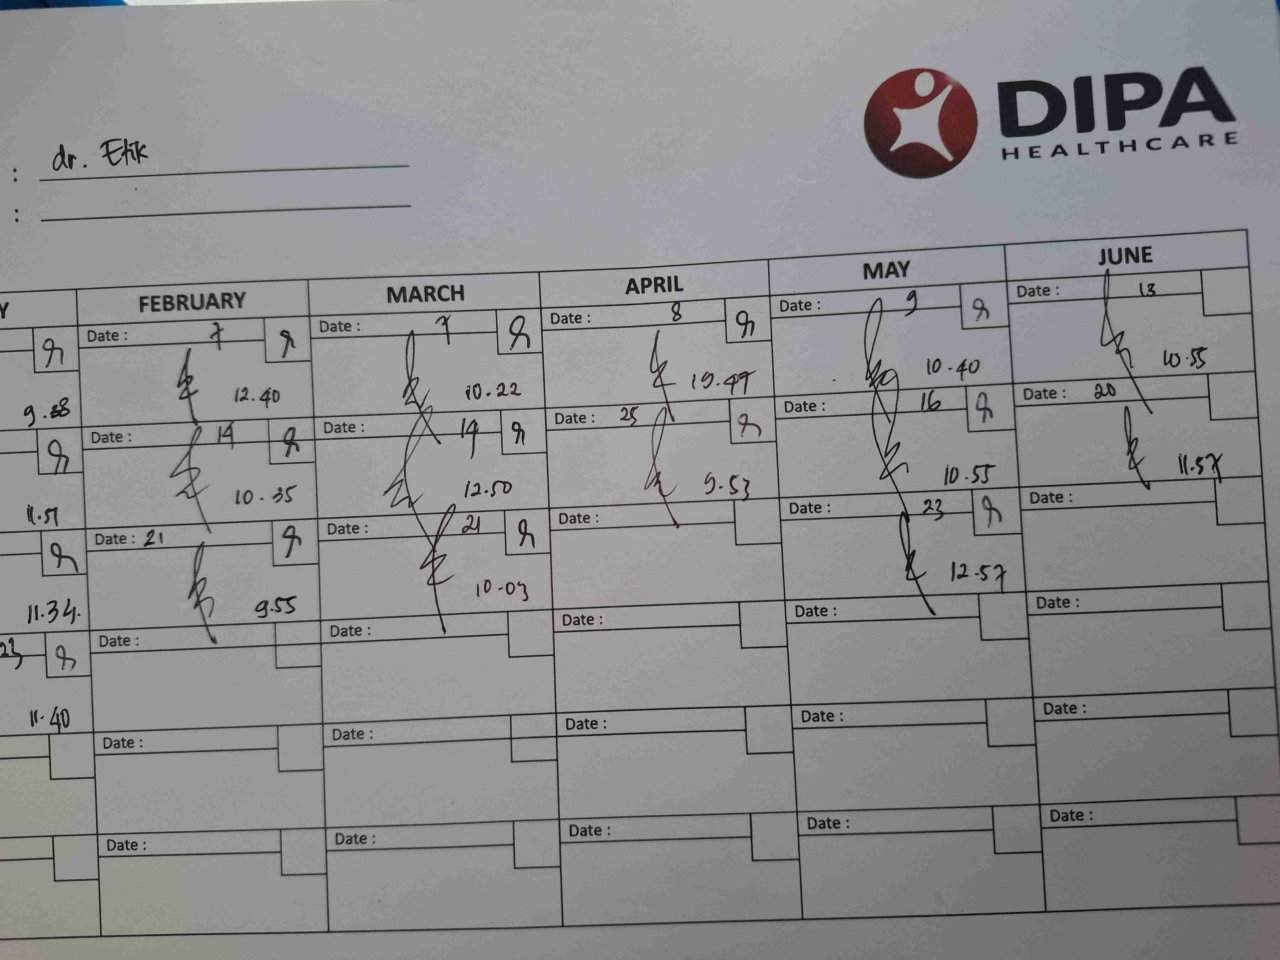 DIPA
HEALTHCARE
: dr. Etik
:
Y FEBRUARY MARCH APRIL MAY JUNE
Date : 7 Date : 7 Date : 8 Date : 9 Date : 13
12.40 10.22 10.40 10.55
Date : 14 Date : 19 Date : 25 Date : 16 Date : 20
11.51 10.35 12.50 9.53 10.55 11.57
Date : 21 Date : 21 Date : Date : 23 Date :
11.34. 9.55 10.03 12.57
23 Date : Date : Date : Date : Date :
11.40
Date : Date : Date : Date : Date :
Date : Date : Date : Date : Date :